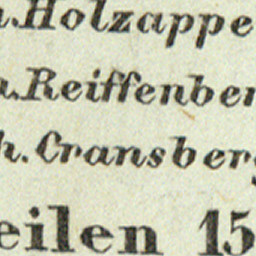 u.Holzappe
u.Reiffenber
h.Cransberg
eilen 15